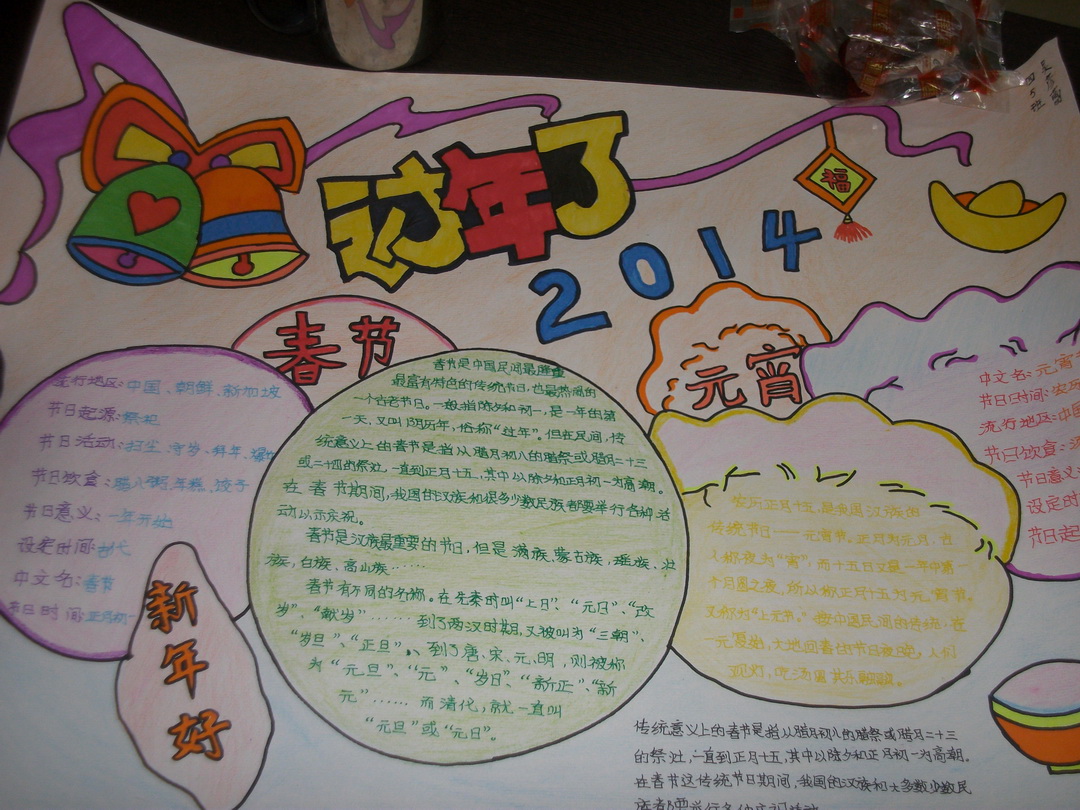 过年了
2014
福
四5班
春节
元宵
流行地区:中国、朝鲜、新加坡
节日起源:祭祀
节日活动:扫尘、守岁、拜年、
节日饮食:腊八粥、年糕、饺子
节日意义:一年开始
设定时间:
中文名:春节
节日时间:正月初一
新年好
春节是中国民间最隆重
最富有特色的传统节日,也最热闹的
一个古老节日。一般指除夕和初一,是一年的第
一天,又叫阴历年,俗称“过年”。但在民间,传
统意义上的春节是指从腊月初八的腊祭或腊月二十三
或二十四的祭灶,一直到正月十五,其中以除夕和正月初一为高潮。
在春节期间,我国的汉族和很多少数民族都要举行各种活
动以示庆祝。
春节是汉族最重要的节日,但是满族、蒙古族、瑶族、壮
族,白族、高山族……
春节有不同的名称。在先秦时叫“上日”、“元日”、“改
岁”、“献岁”……到了两汉时期,又被叫为“三朝”、
“岁旦”、“正旦”、到了唐、宋、元、明,则被称
为“元旦”、“元”、“岁日”、“新正”、“新
元”……而清代,就一直叫
“元旦”或“元日”。
农历正月十五,是我国汉族的
传统节日——元宵节。正月为元月,古
人称夜为“宵”,而十五日又是一年中第一
个月圆之夜,所以称正月十五为元宵节。
又称为“上元节”。中国民间的传统,在
一元复始,大地回春的节日夜晚,人们
观灯,吃汤圆其乐融融。
中文名:元宵
节日时间:农历
流行地区:中国
节日饮食:
节日意义
设定时
节日起
传统意义上的春节是指从腊月初八的腊祭或腊月二十三
的祭灶,一直到正月十五,其中以除夕和正月初一为高潮。
在春节这传统节日期间,我国的汉族和大多数少数民
族都要举行各